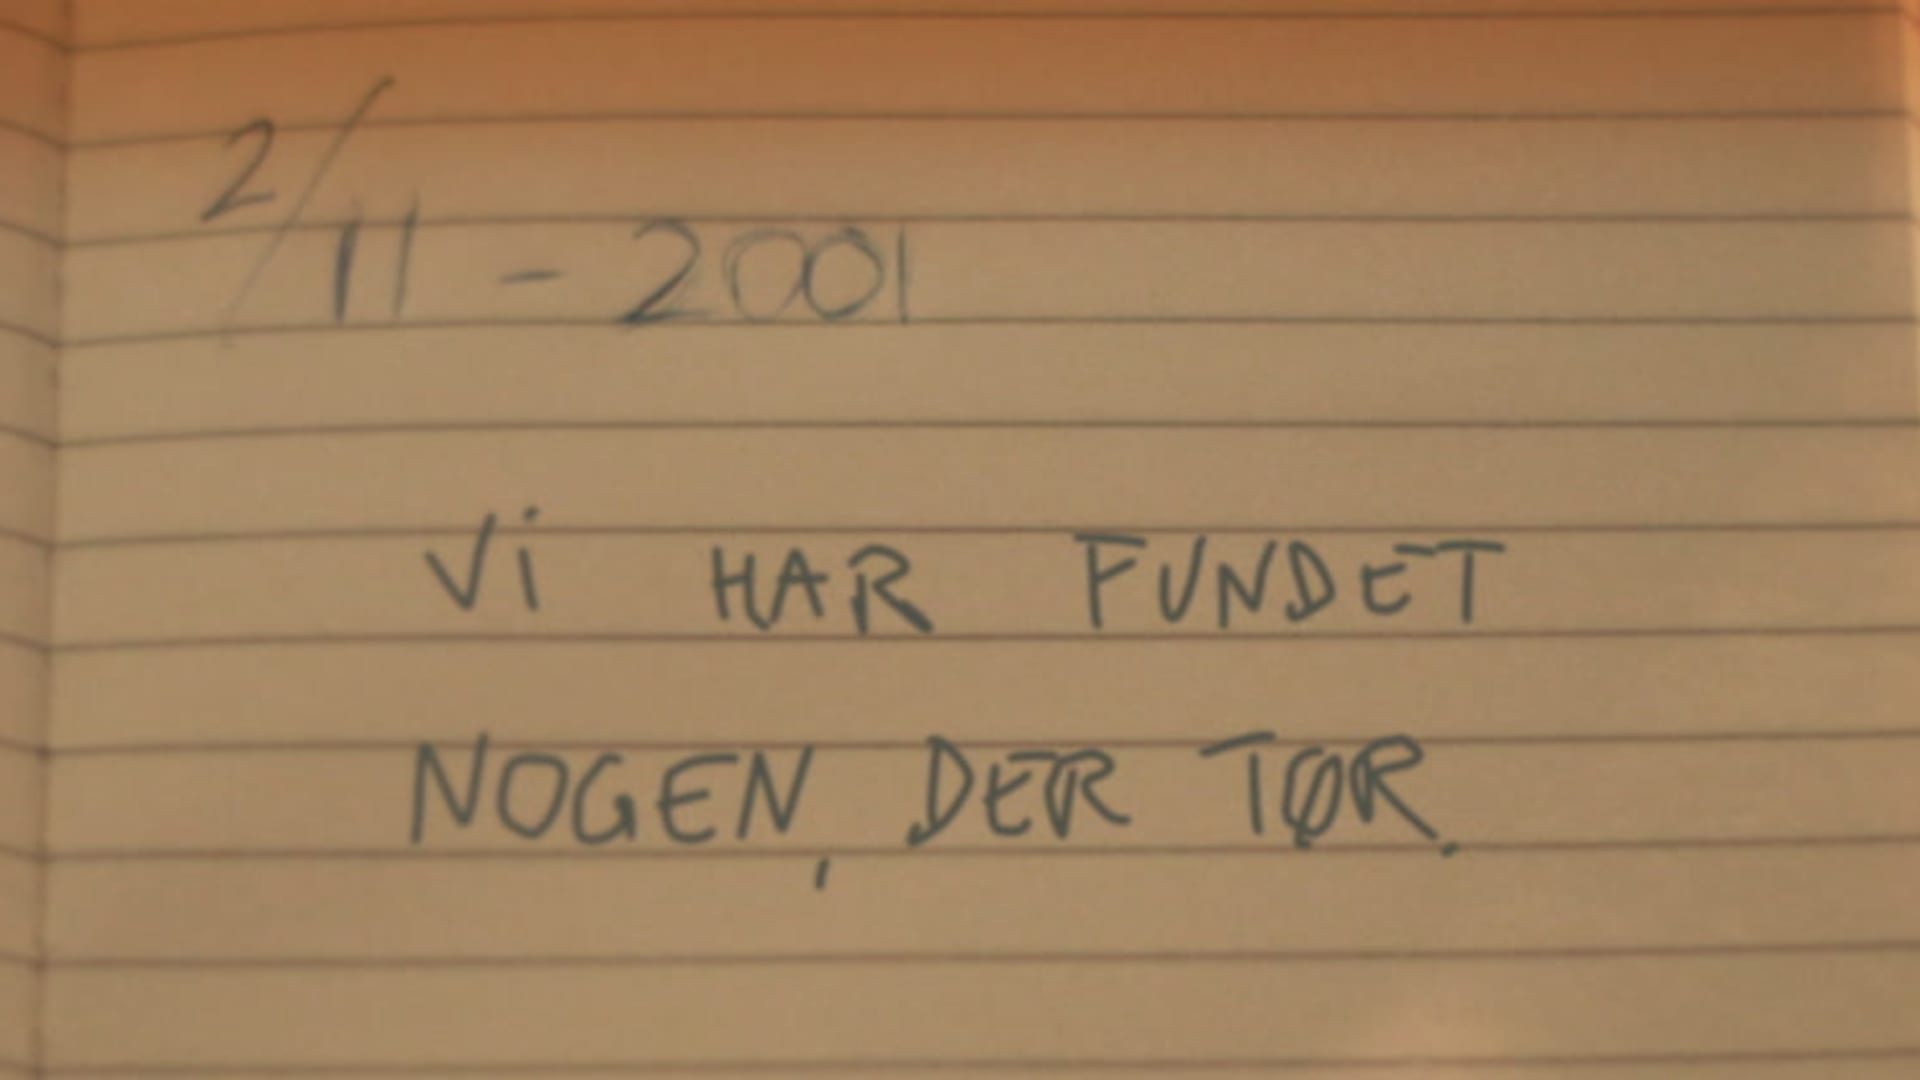 2/11 - 2001
Vi HAR FUNDET
NOGEN, DER TØR.